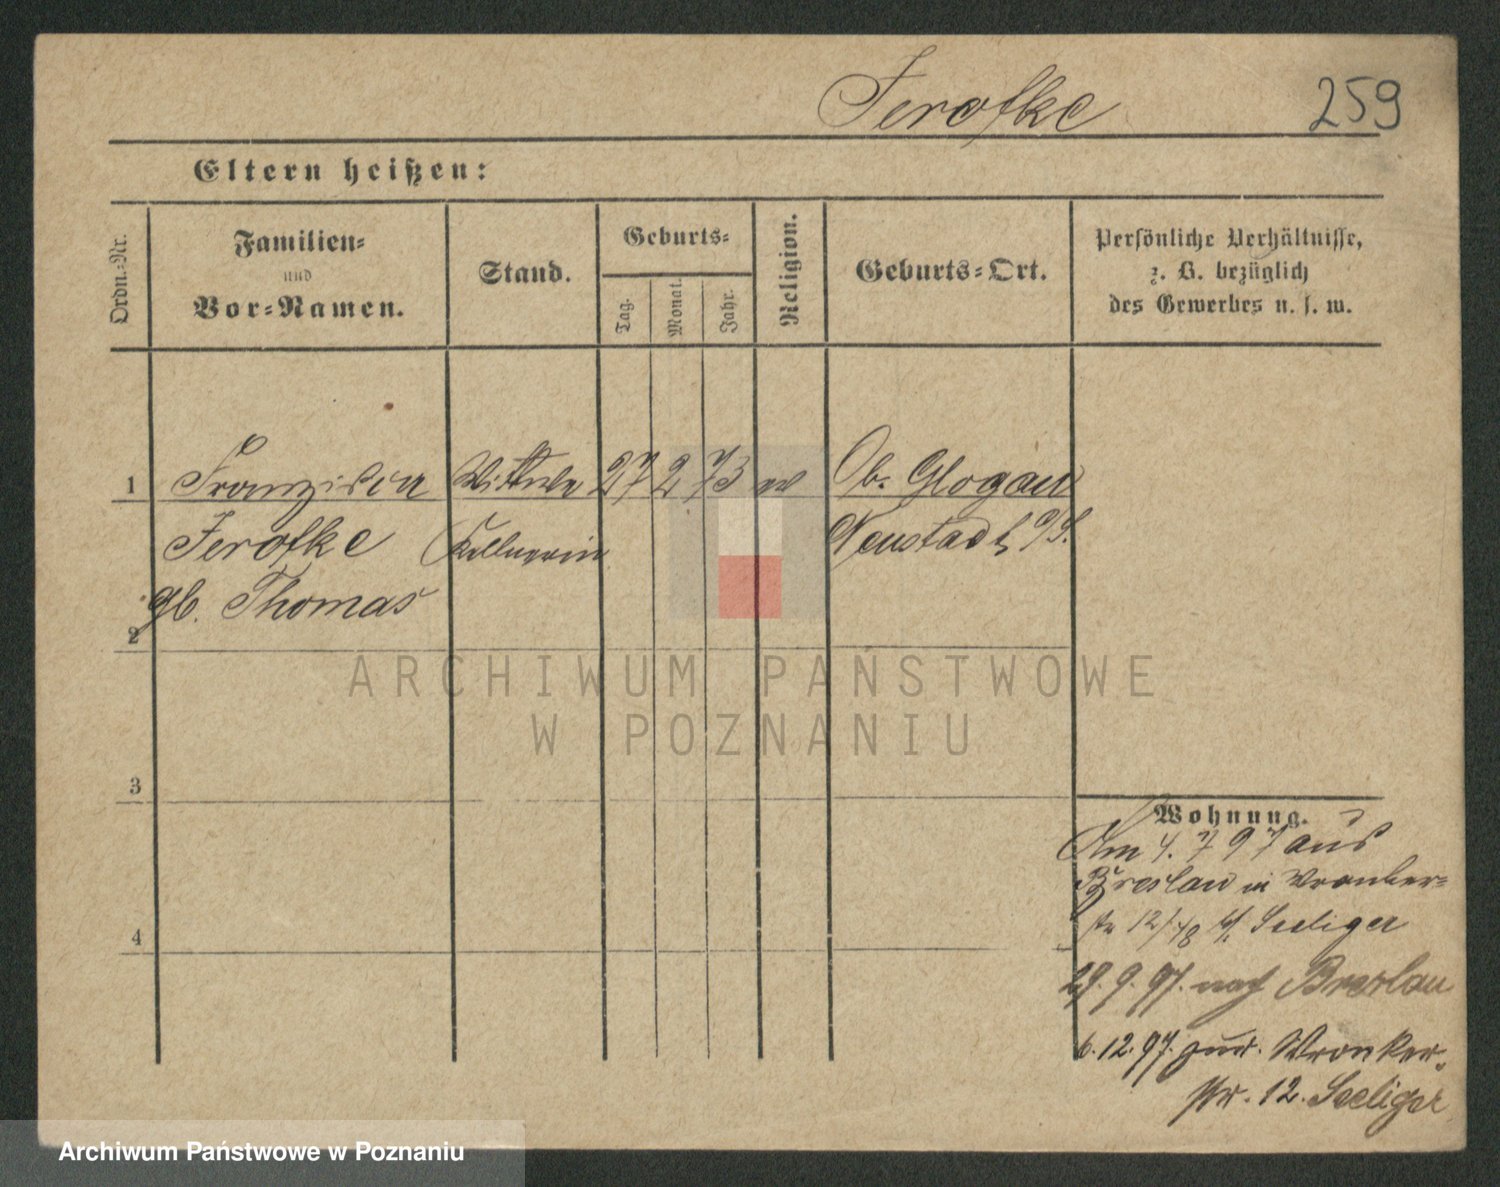 Jerofke
259
Eltern heißen:
Ordn.-Nr.
Familien-
und
Vor-Namen.
Stand.
Geburts-
Tag.
Monat.
Jahr.
Religion.
Geburts-Ort.
Persönliche Verhältnisse,
z. B. bezüglich
des Gewerbes u. s. w.
1 Franziska Wittwe 27 2 73 Ob. Glogau
Jerofke Kellnerin Neustadt O/S.
gb. Thomas
2
3
4
Wohnung.
Am 4. 7 97 aus
Breslau in Wronker-
str 12 Seeliger
29. 9. 97. nach Breslau
6. 12. 97. zur. Wronker-
str. 12. Seeliger
ARCHIWUM PAŃSTWOWE
W POZNANIU
Archiwum Państwowe w Poznaniu